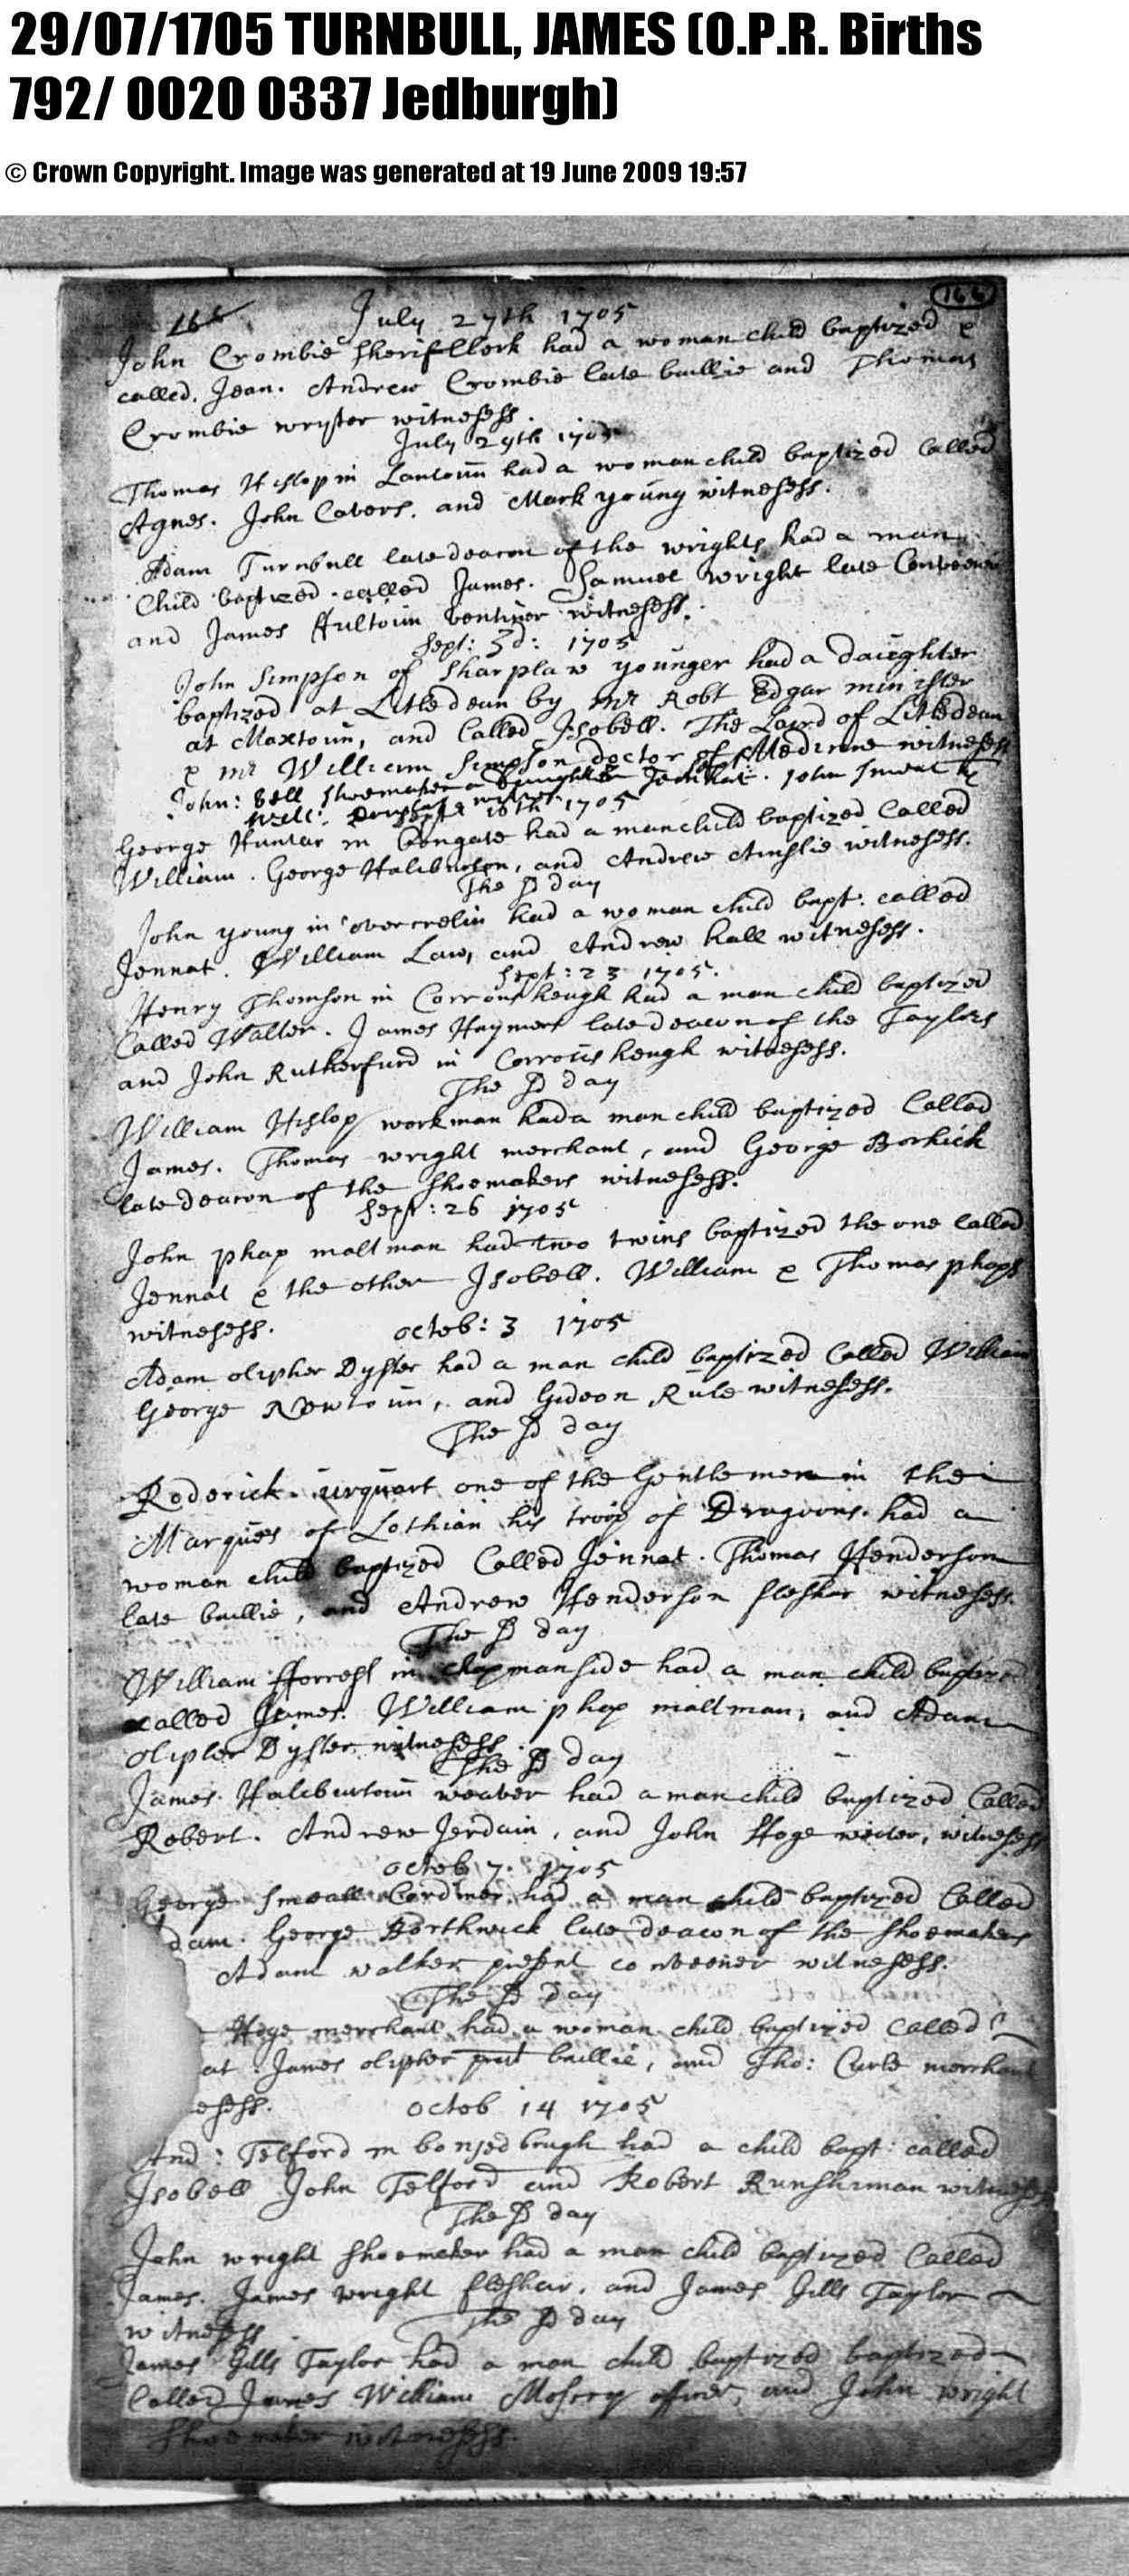 29/07/1705 TURNBULL, JAMES (O.P.R. Births
792/ 0020 0337 Jedburgh)
© Crown Copyright. Image was generated at 19 June 2009 19:57
166
166
July 27th 1705
John Crombie Sherif Clerk had a woman child baptized &
called Jean. Andrew Crombie late baillie and Thomas
Crombie wryter witnesess.
July 29th 1705
Thomas Hislop in Lantoun had a woman child baptized Called
Agnes. John Cavers, and Mark young witnesess.
Adam Turnbull late deacon of the wrights had a man
Child baptized called James. Samuel wright late Conveener
and James Fultoun witnesess.
Sept: 3d: 1705
John Simpson of Sharplaw younger had a daughter
baptized at Litledean by Mr Robt Edgar minister
at Maxtoun, and Called Isobell. The Laird of Litledean
& Mr William Simpson doctor of Medicine witnesess
John: Bell Shoemaker a Daughter Jennat. John
Will: 16th 1705
George Huntar in had a man child baptized Called
William. George Haliburton, and Andrew Ainslie witnesess.
The Sd day
John young in overcrelin had a woman child bapt: called
Jennat. William Law, and Andrew hall witnesess.
Sept: 23 1705.
Henry Thomson in had a man child baptized
Called Walter. James late deacon of the Taylors
and John Rutherfurd in witnesess.
The Sd day
William Hislop workman had a man child baptized Called
James. Thomas wright merchant, and George
late deacon of the Shoemakers witnesess.
Sept: 26 1705
John phap maltman had two twins baptized the one Called
Jennat & the other Isobell. William & Thomas phaps
witnesess.
octob: 3 1705
Adam olipher Dyster had a man child baptized Called William
George Newtoun, and Gideon Rule witnesess.
The Sd day
Roderick urquart one of the Gentlemen in the
Marques of Lothian his troop of Dragoons had a
woman child baptized Called Jennat. Thomas Henderson
late baillie, and Andrew Henderson flesher witnesess.
The Sd day
William Forrest in chapmanside had a man child baptized
called James. William phap maltman, and Adam
olipher Dyster witnesess.
The Sd day
James Haliburtoun weaver had a man child baptized Called
Robert. Andrew Jerdain, and John Hoge witnesess
octob 7. 1705
George Cordiner had a man child baptized Called
dam. George Borthwick late deacon of the Shoemakers
Adam walker present conveener witnesess.
The Sd day
Hoge merchant had a woman child baptized called
at. James olipher baillie, and Tho: merchant
esess.
octob 14 1705
And: Telford in bonjedbrugh had a child bapt: called
Isobell John Telford and Robert witnesess
The Sd day
John wright Shoemaker had a man child baptized Called
James. James wright flesher, and James Gills Taylor
witnesess
The Sd day
James Gills Taylor had a man child baptized baptized
Called James William officer, and John wright
Shoemaker witnesess.